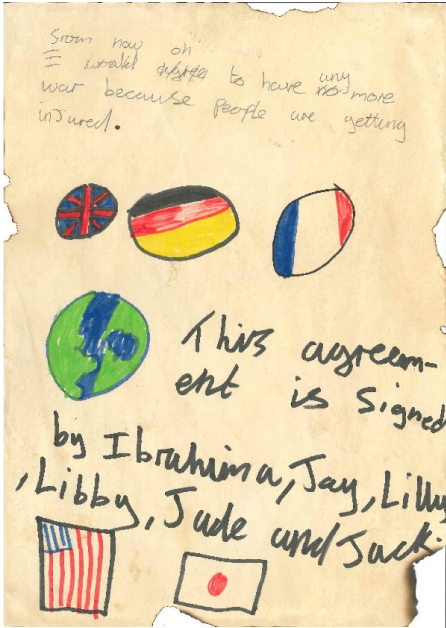 From now on
I would disagree to have any
war because people are getting no more
injured.
This agreem-
ent is Signed
by Ibrahima, Jay, Lilly
, Libby, Jade and Jack.